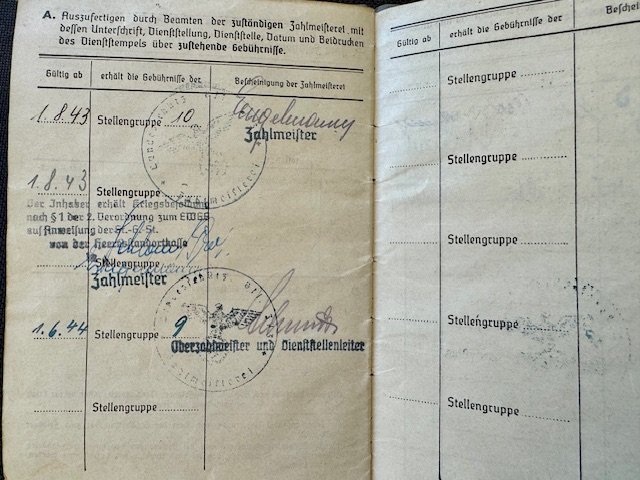 A. Auszufertigen durch Beamten der zuständigen Zahlmeisterei mit
dessen Unterschrift, Dienststellung, Dienststelle, Datum und Beidrucken
des Dienststempels über zustehende Gebührnisse.
Gültig ab
erhält die Gebührnisse der
Bescheinigung der Zahlmeisterei
1.8.43
Stellengruppe 10
Zahlmeister
1.8.43
Stellengruppe
Der Inhaber erhält Kriegsbesoldung
nach § 1 der 2. Verordnung zum EWGG
auf Anweisung der St.-G. St.
von der Heeresstandortkasse
Stellengruppe
Zahlmeister
1.6.44
Stellengruppe 9
Oberzahlmeister und Dienststellenleiter
Stellengruppe
Gültig ab
erhält die Gebührnisse der
Stellengruppe
Stellengruppe
Stellengruppe
Stellengruppe
Stellengruppe